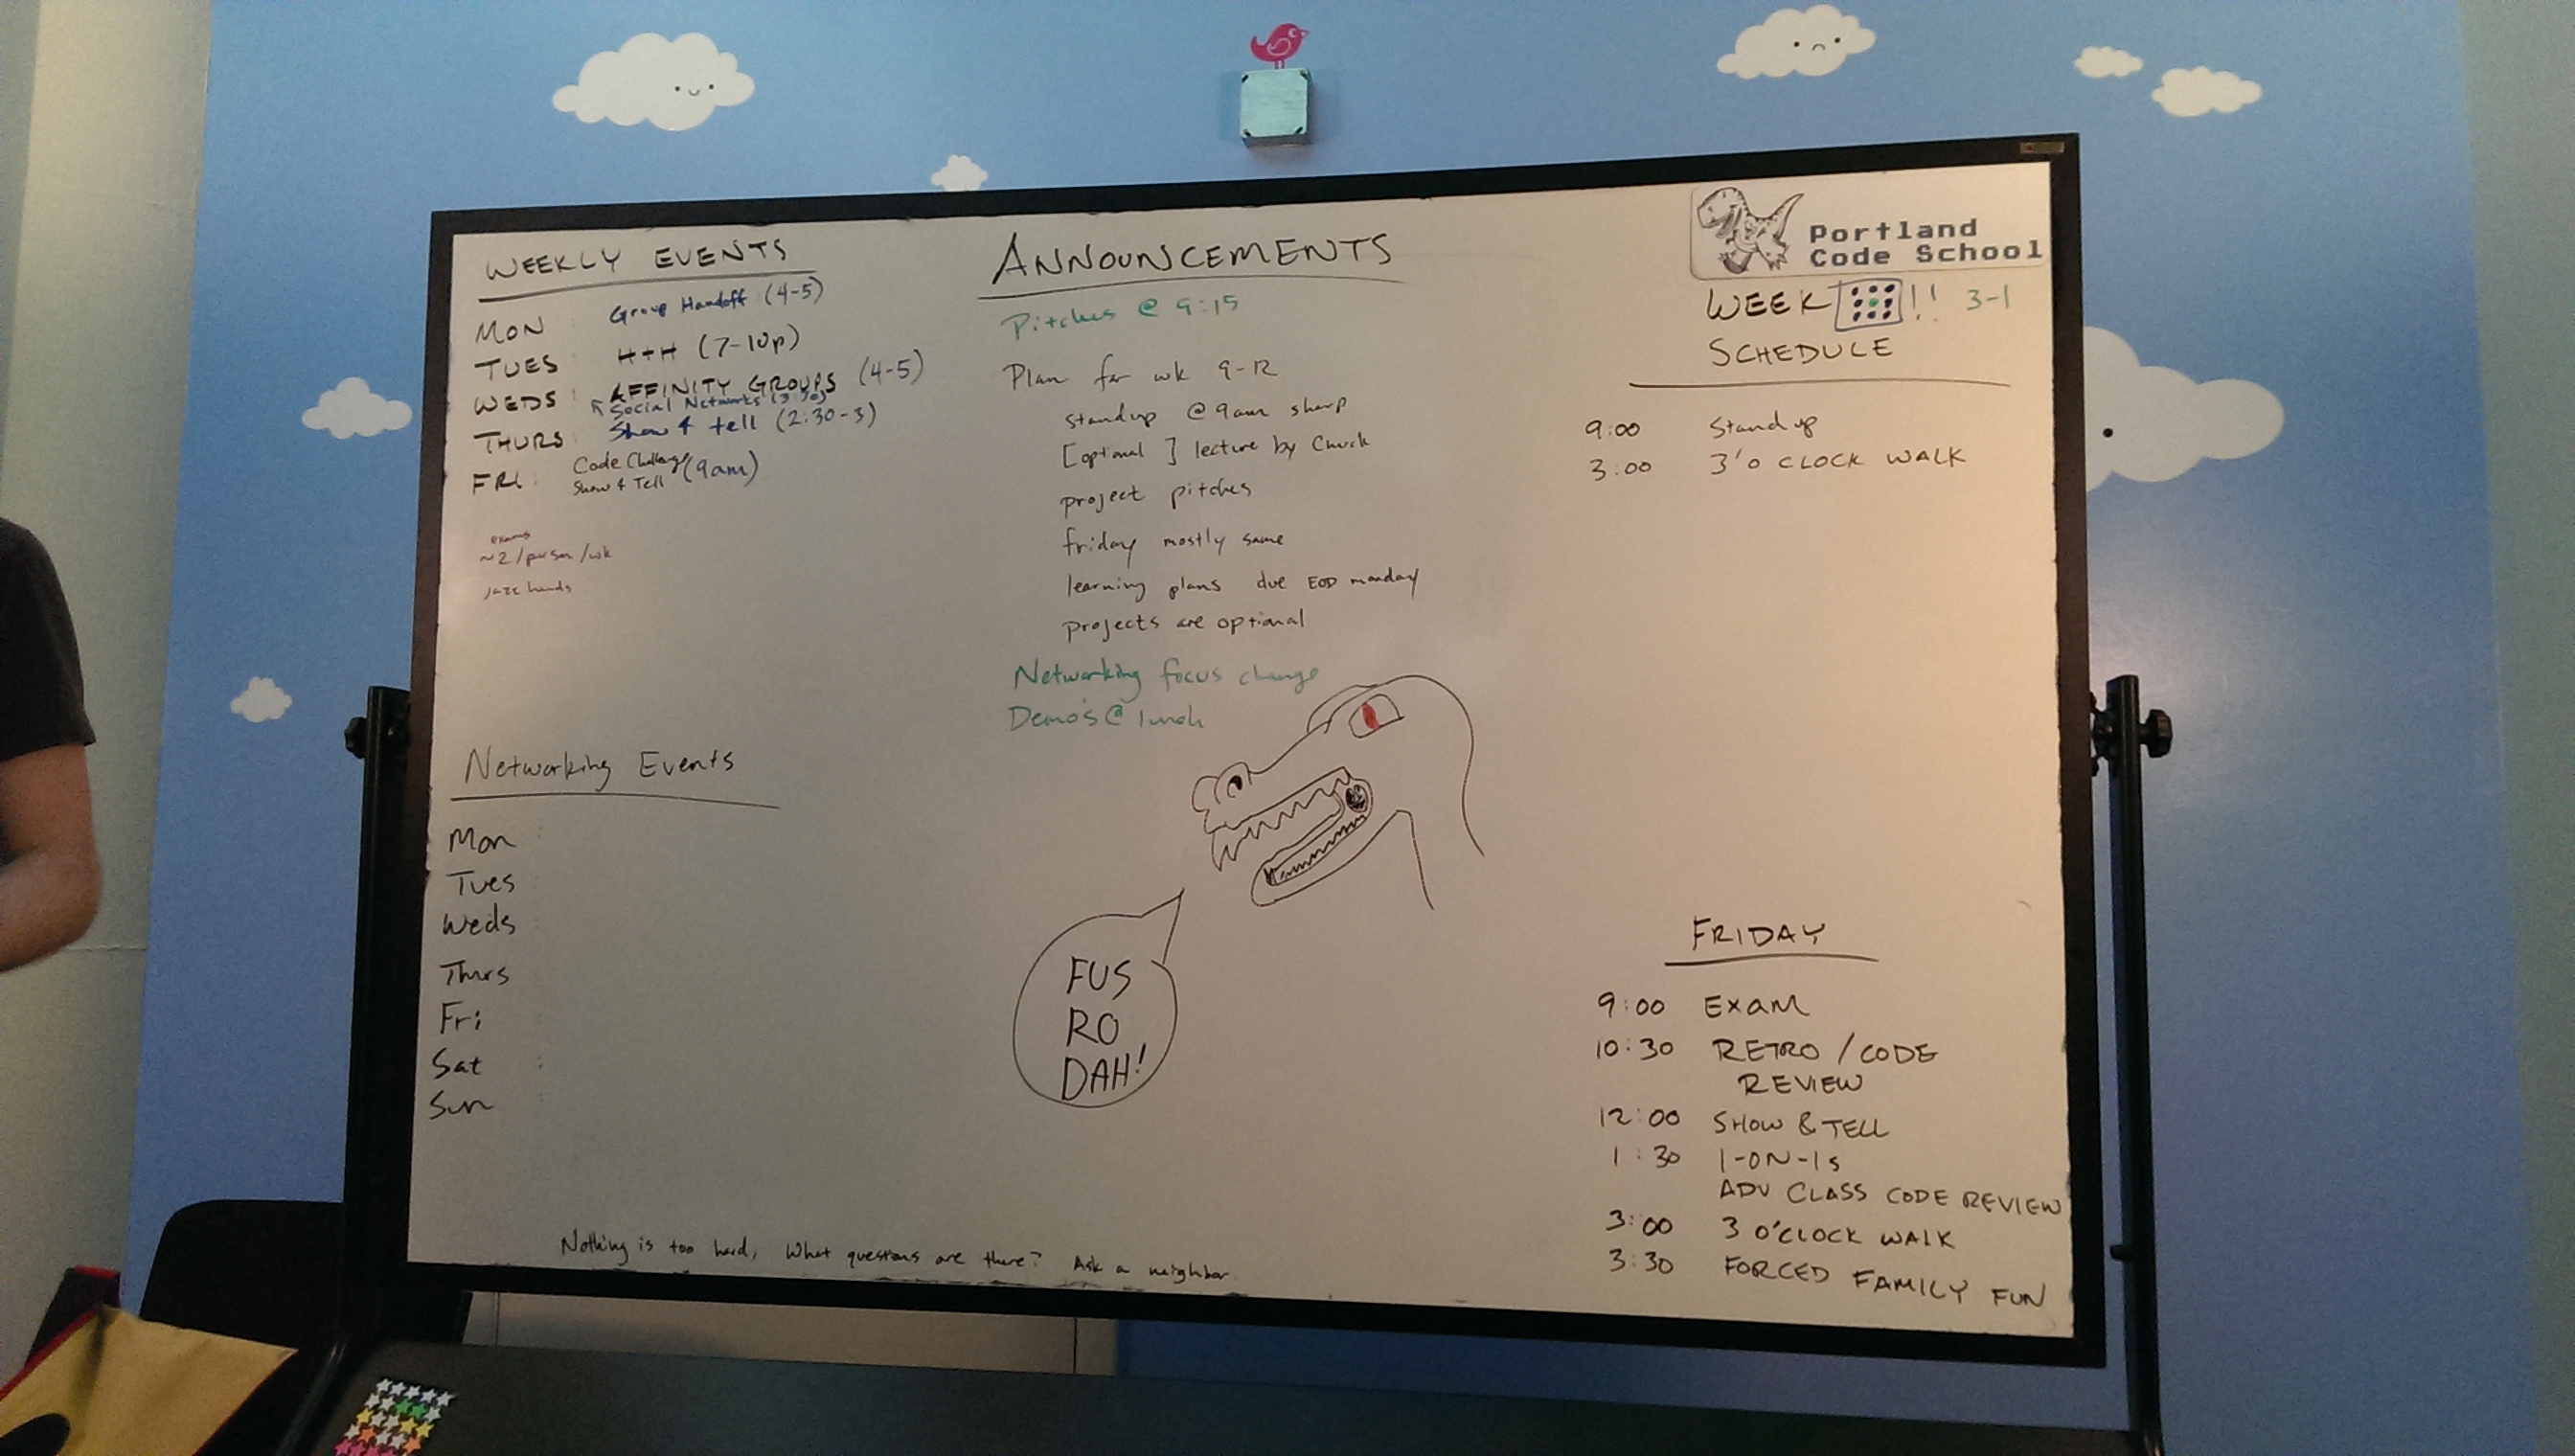 WEEKLY EVENTS
MON : Group Handoff (4-5)
TUES : H+H (7-10p)
WEDS : AFFINITY GROUPS (4-5)
Social Networks (3:30)
THURS : Show & tell (2:30-3)
FRI : Code Challenge
Show & Tell (9am)
exams
~2/person/wk
jazz hands
Networking Events
Mon :
Tues :
Weds
Thurs
Fri :
Sat :
Sun
ANNOUNCEMENTS
Pitches @ 9:15
Plan for wk 9-12
standup @ 9am sharp
[optional ] lecture by Chuck
project pitches
friday mostly same
learning plans due EOD monday
projects are optional
Networking focus change
Demo's @ lunch
FUS
RO
DAH!
Nothing is too hard, What questions are there? Ask a neighbor.
Portland
Code School
WEEK !! 3-1
SCHEDULE
9:00 Standup
3:00 3'O CLOCK WALK
FRIDAY
9:00 EXAM
10:30 RETRO / CODE
REVIEW
12:00 SHOW & TELL
1:30 1-ON-1s
ADV CLASS CODE REVIEW
3:00 3 O'CLOCK WALK
3:30 FORCED FAMILY FUN